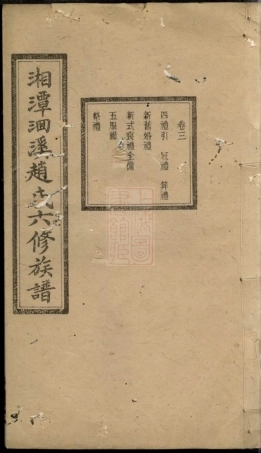 湘潭泗溪趙氏六修族譜
卷三
四禮引 冠禮 笄禮
新舊婚禮
新式喪禮全備
五服圖
祭禮